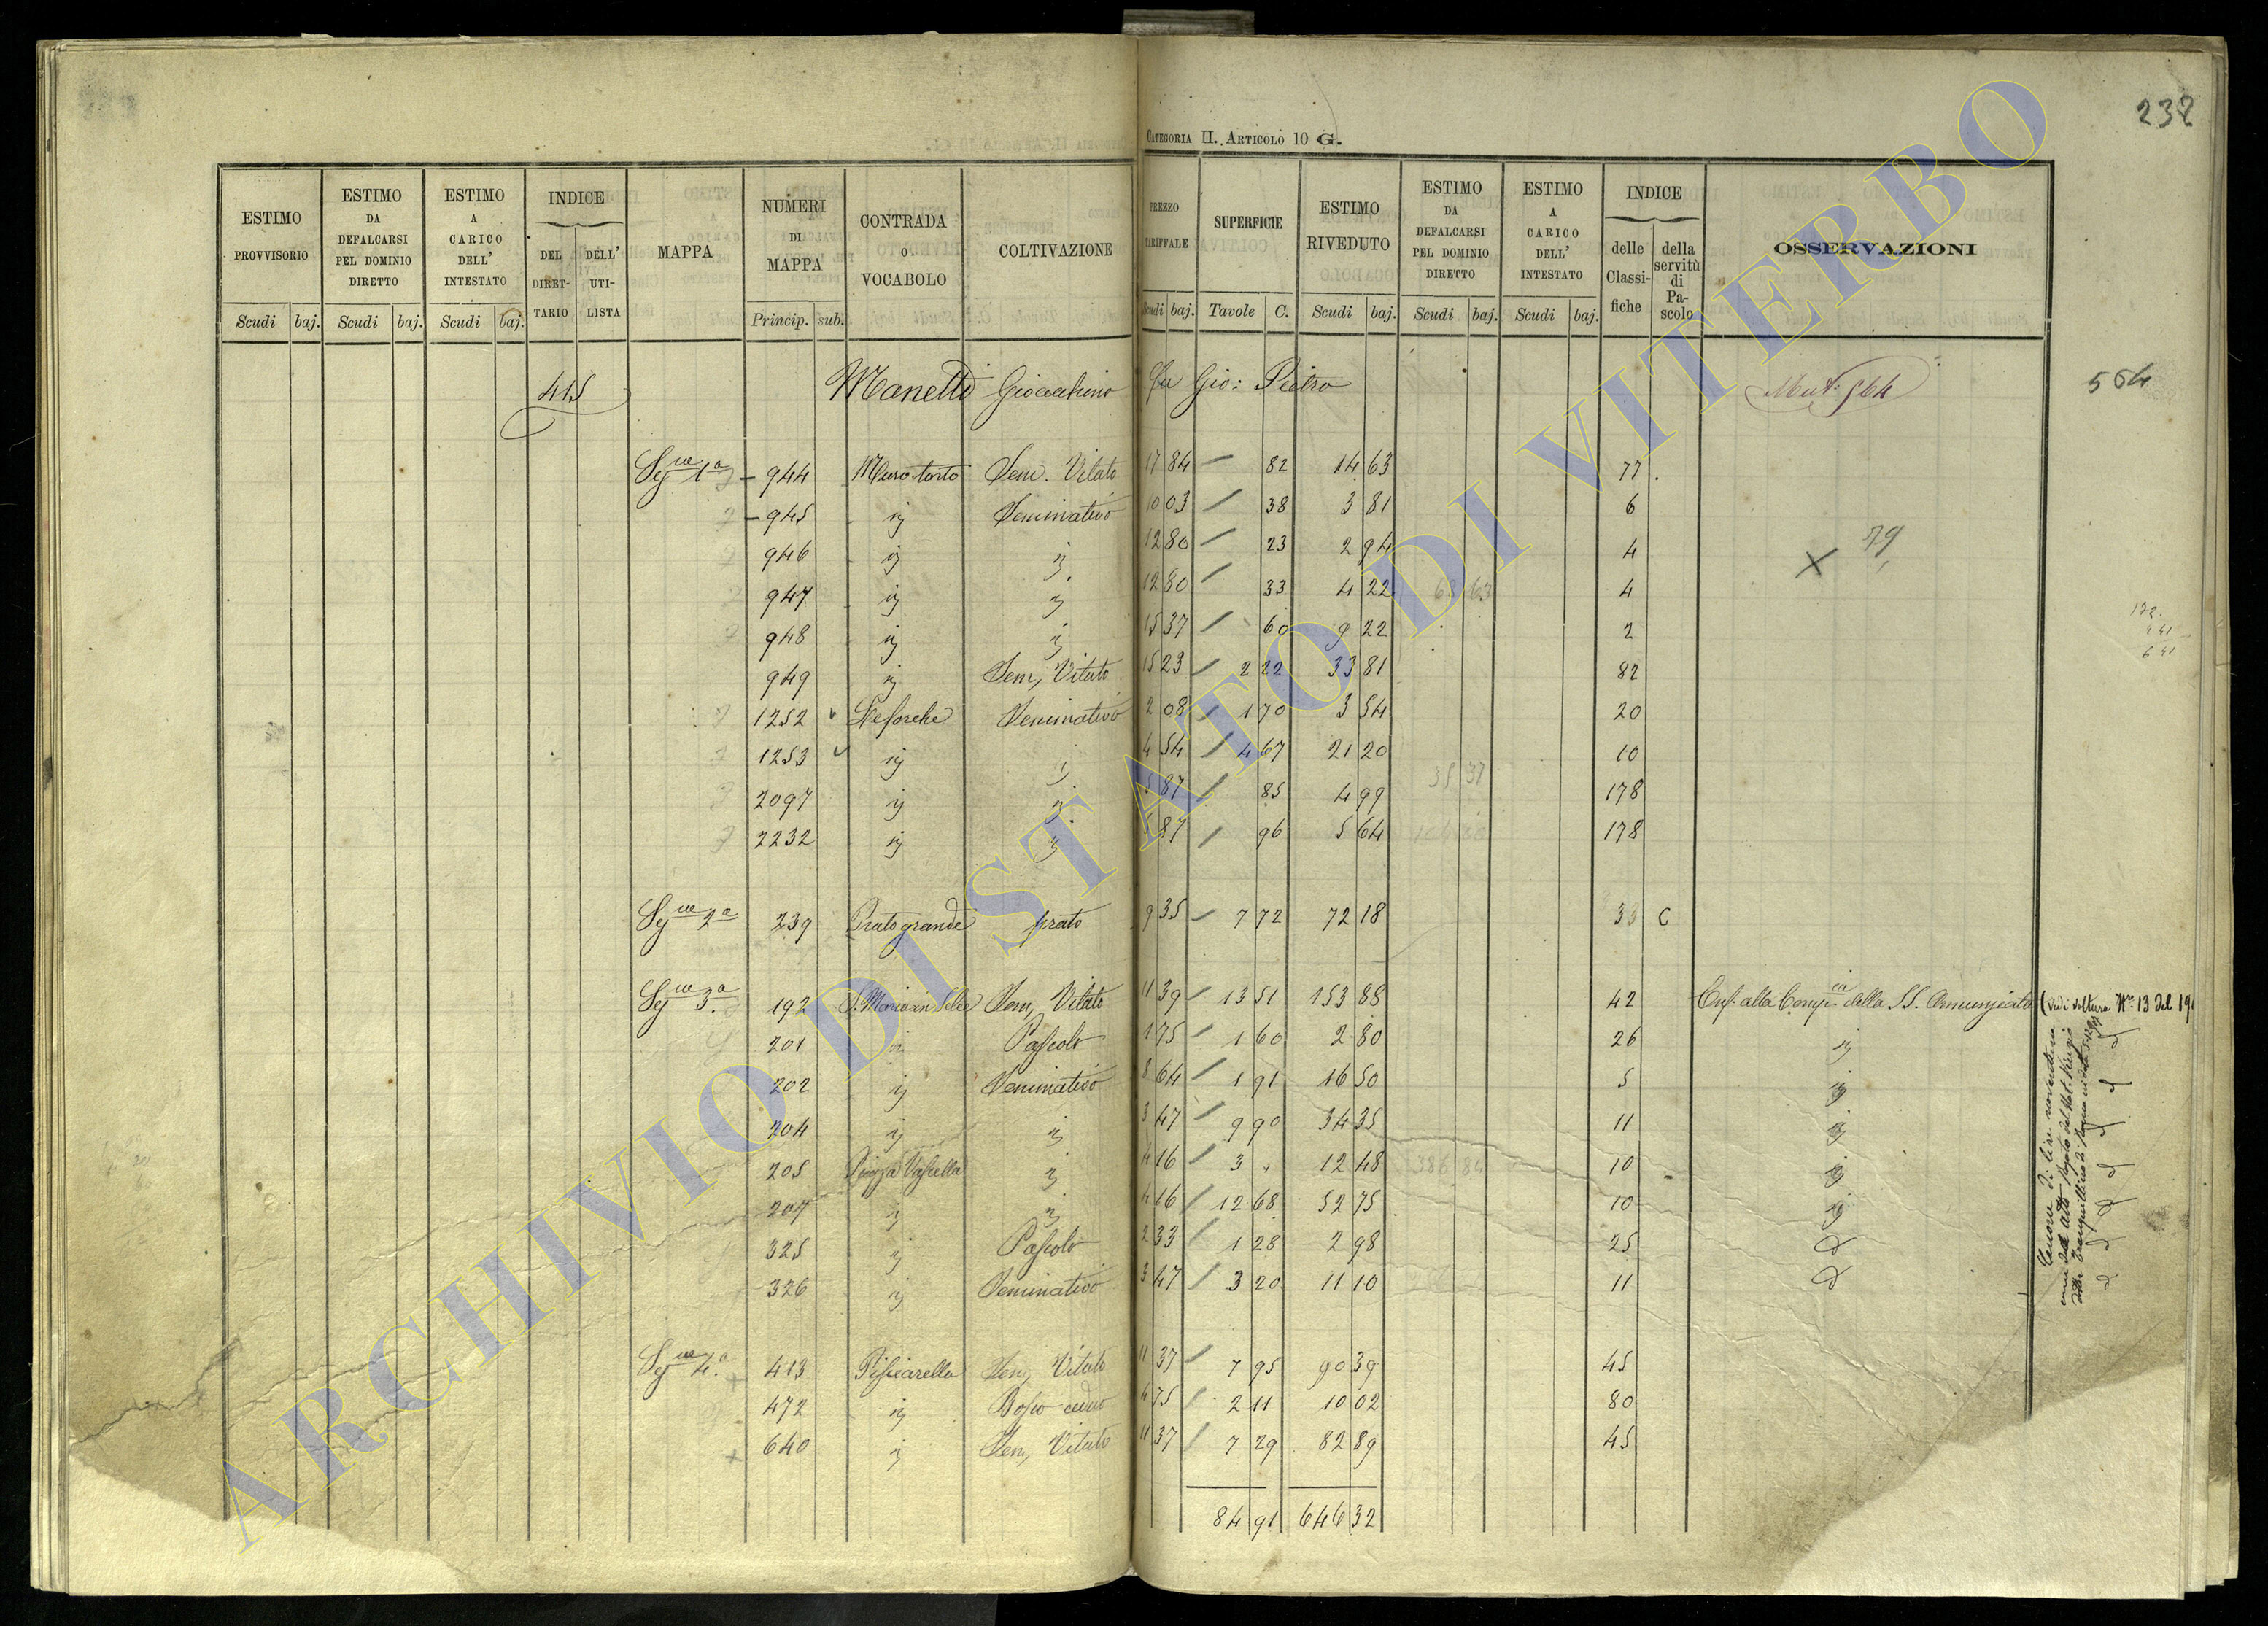 232
CATEGORIA II. ARTICOLO 10 G.
ESTIMO PROVVISORIO Scudi baj.
ESTIMO DA DEFALCARSI PEL DOMINIO DIRETTO Scudi baj.
ESTIMO A CARICO DELL' INTESTATO Scudi baj.
INDICE DEL DIRETTARIO DELL' UTILISTA
MAPPA
NUMERI DI MAPPA Princip. sub.
CONTRADA O VOCABOLO
COLTIVAZIONE
PREZZO TARIFFALE Scudi baj.
SUPERFICIE Tavole C.
ESTIMO RIVEDUTO Scudi baj.
ESTIMO DA DEFALCARSI PEL DOMINIO DIRETTO Scudi baj.
ESTIMO A CARICO DELL' INTESTATO Scudi baj.
INDICE delle Classifiche della servitù di Pascolo
OSSERVAZIONI
415 Manetti Gioacchino fu Gio: Pietro Mut: 564 564
Segne 1a 944 Muro torto Sem. Vitato 17 84 82 14 63 77
945 ij Seminativo 10 03 38 3 81 6
946 ij ij 12 80 23 2 94 4 79
947 ij ij 12 80 33 4 22 68 63 4
948 ij ij 15 37 60 9 22 2
949 ij Sem, Vitato 15 23 2 22 33 81 82
1252 Seminativo 2 08 1 70 3 54 20
1253 ij ij 4 54 4 67 21 20 10
2097 ij ij 5 87 85 4 99 35 37 178
2232 ij ij 5 87 96 5 64 178
Segne 2a 239 Prato grande prato 9 35 7 72 72 18 C
Segne 3a 192 S. Maria in Selce Sem, Vitato 11 39 13 51 153 88 42 Enf. alla Compia della SS. Annunziata (Vedi voltura No 13 del
201 ij Pascolo 1 75 1 60 2 80 26 ij
202 ij Seminativo 8 64 1 91 16 50 5 ij
204 ij ij 3 47 9 90 34 35 11 ij
205 ij 4 16 3 " 12 48 386 84 10 ij
207 ij ij 4 16 12 68 52 75 10 ij
325 ij Pascolo 2 33 1 28 2 98 25
326 ij Seminativo 3 47 3 20 11 10 11
Segne 4a 413 Pisciarella Sem, Vitato 11 37 7 95 90 39 45
472 ij Bosco ceduo 4 75 2 11 10 02 80
640 ij Sem, Vitato 11 37 7 29 82 89 45
84 91 646 32
Canone di lire
ARCHIVIO DI STATO DI VITERBO